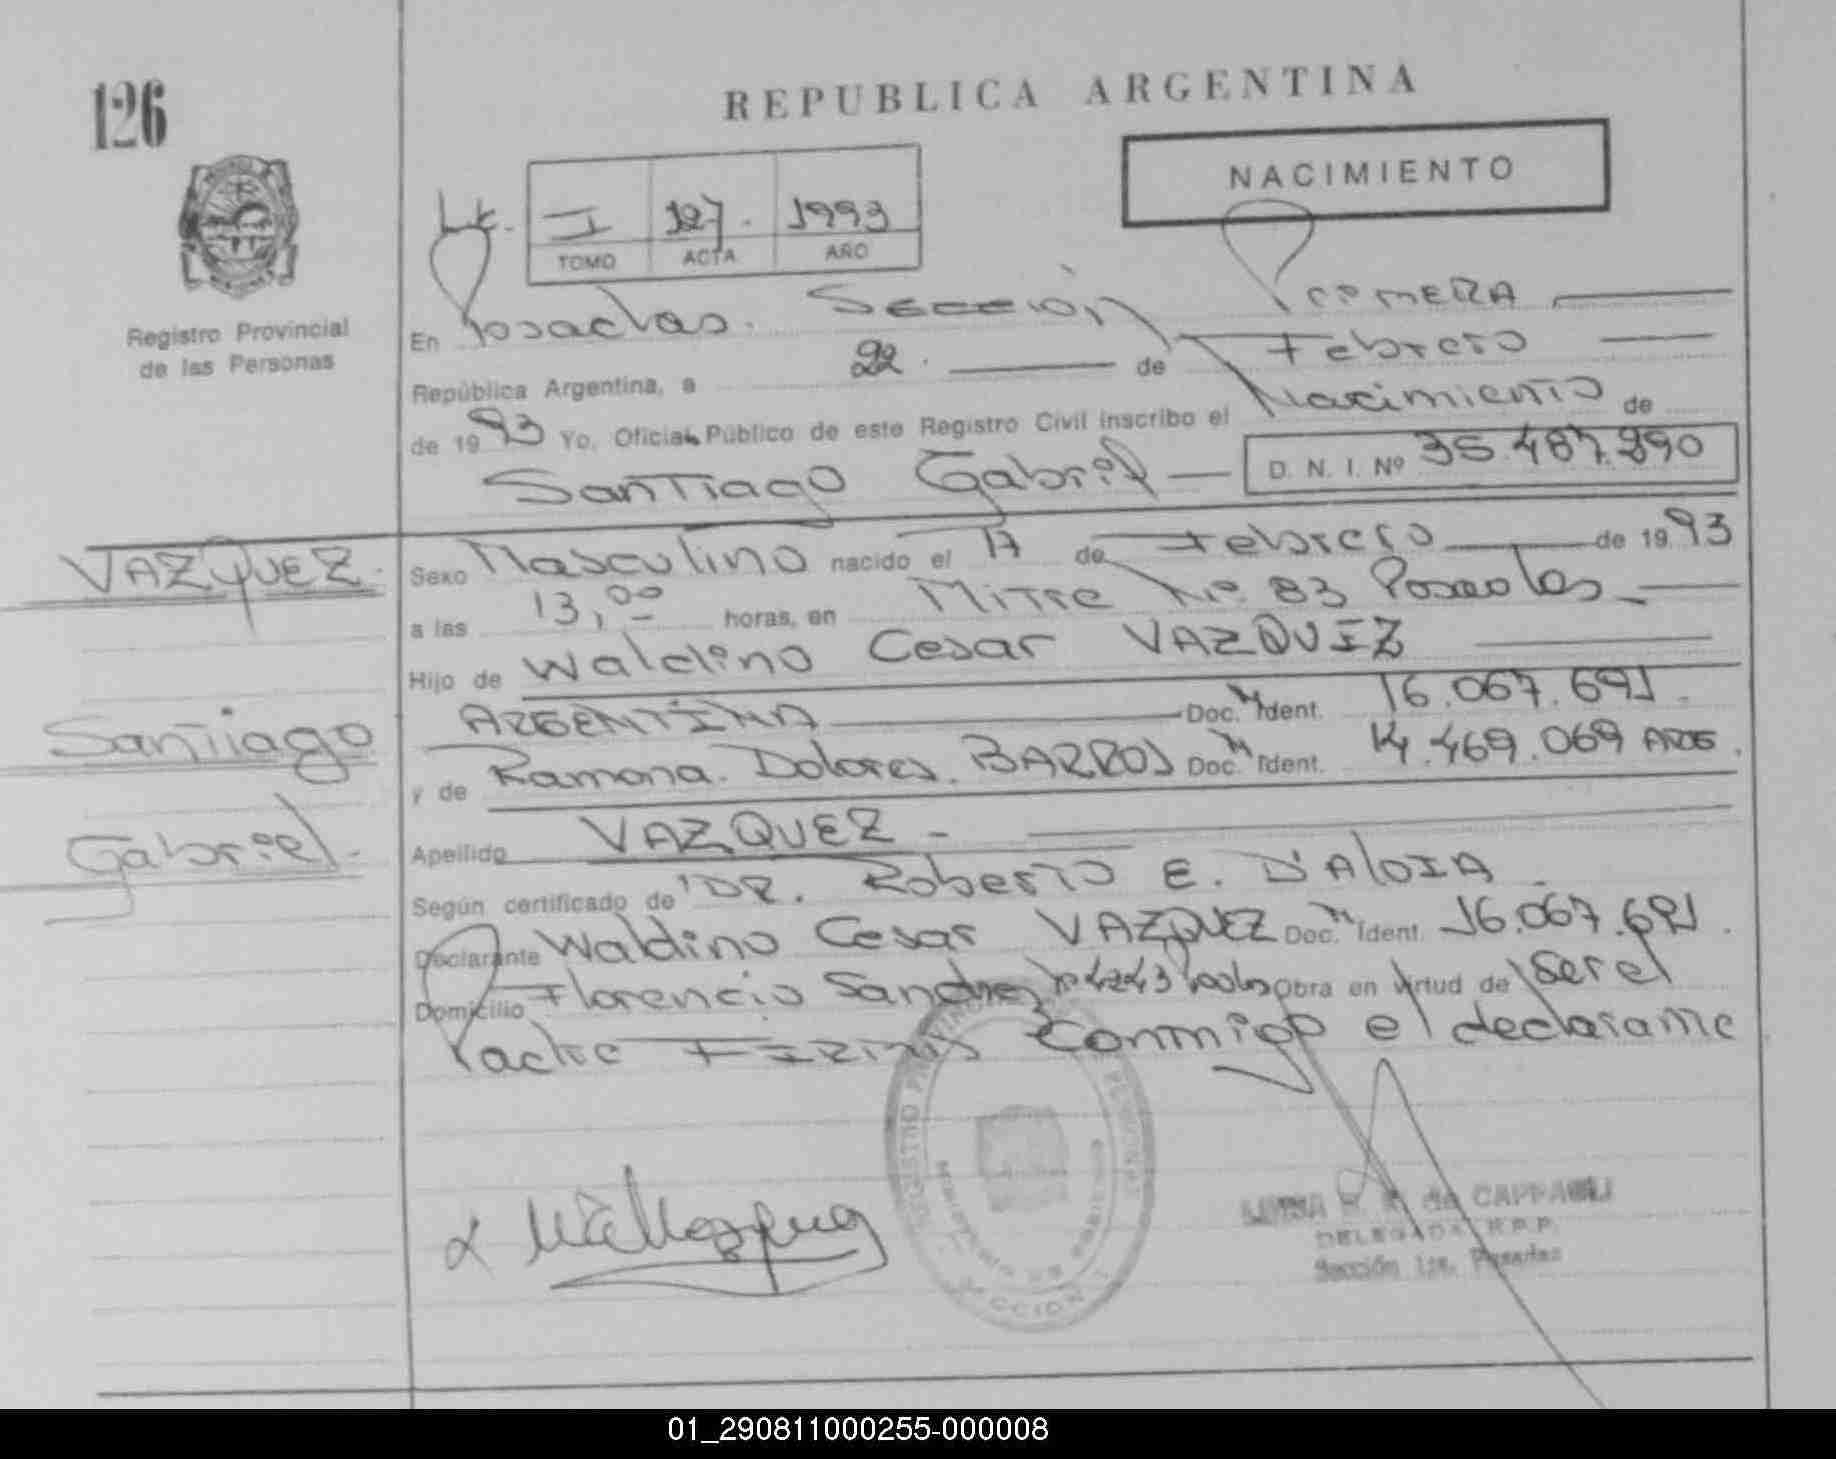 126
REPUBLICA ARGENTINA
NACIMIENTO
I 127. 1993
TOMO ACTA AÑO
Registro Provincial
de las Personas
En Posadas. Sección Primera
República Argentina, a 22. de Febrero
de 1993 Yo, Oficial Público de este Registro Civil inscribo el Nacimiento de
Santiago Gabriel D. N. I. Nº 35.487.890
VAZQUEZ
Sexo Masculino nacido el 17 de Febrero de 1993
a las 13,00 horas, en Mitre Nº 83 Posadas
Hijo de Waldino Cesar VAZQUEZ
ARGENTINA Doc. Ident. 16.067.691.
Santiago
y de Ramona Dolores BARROS Doc. Ident. 14.469.069
Gabriel
Apellido VAZQUEZ
Según certificado de DR. Roberto E. D'AloIA
Declarante Waldino Cesar VAZQUEZ Doc. Ident. 16.067.691.
Domicilio Florencio Sanchez Nº 4243 Obra en virtud de Ser el
Padre FIRMA Conmigo el declarante
REGISTRO PROVINCIAL DE LAS PERSONAS
MINISTERIO DE GOBIERNO
SECCION 1
de CAPPAELLI
DELEGADA R.P.P.
Sección 1ra. Posadas
01_290811000255-000008